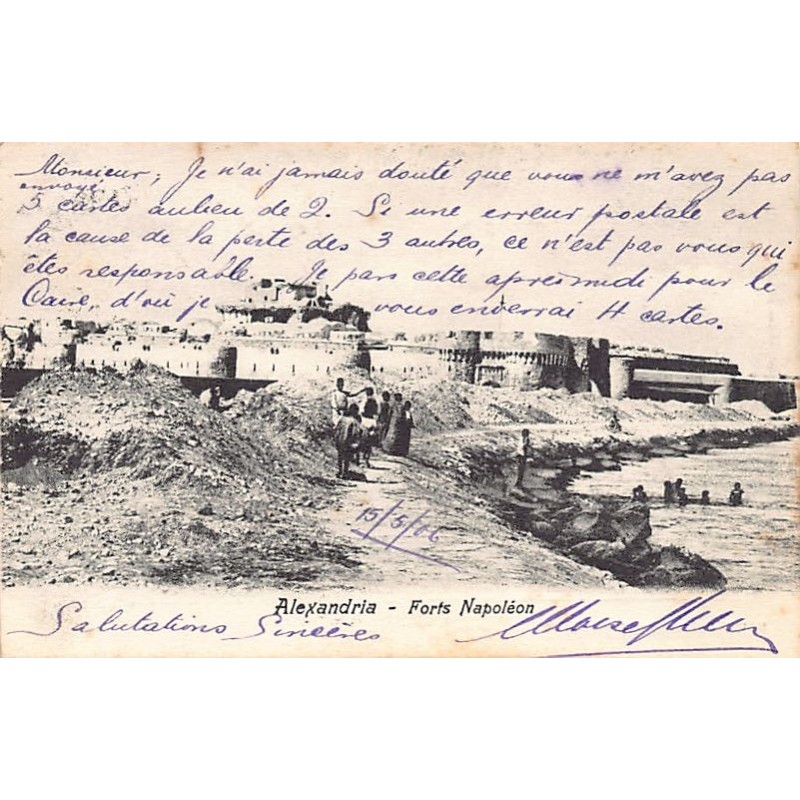 Monsieur, Je n'ai jamais douté que vous ne m'avez pas
envoyé
5 cartes aulieu de 2. Si une erreur postale est
la cause de la perte des 3 autres, ce n'est pas vous qui
êtes responsable. Je pars cette apresmidi pour le
Caire, d'où je vous enverrai 4 cartes.
15/5/06
Alexandria - Forts Napoléon
Salutations Sincères